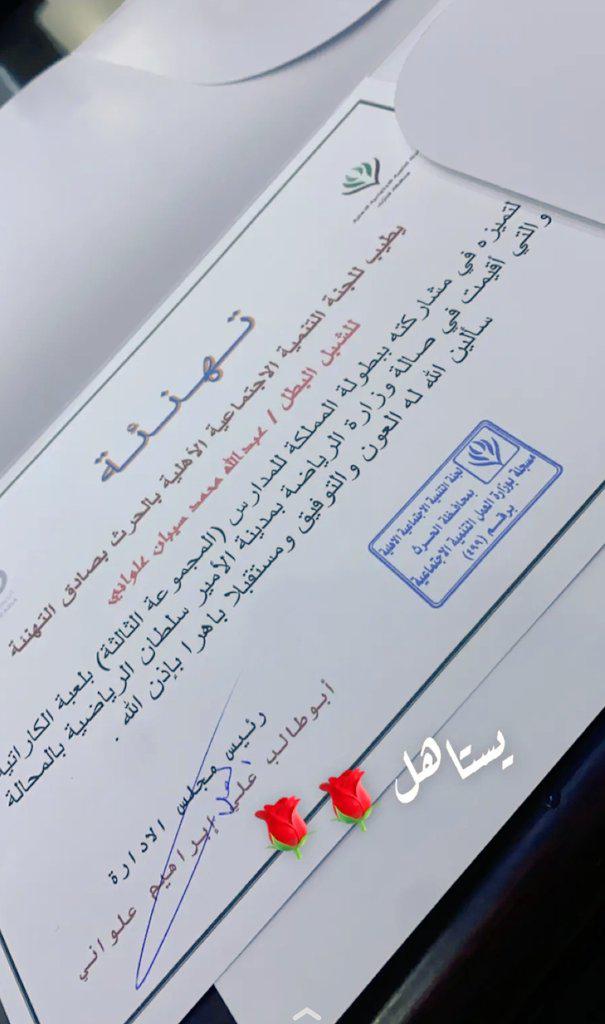 تهنئة
يطيب للجنة التنمية الاجتماعية الأهلية بالحرث بصادق التهنئة
للشبل البطل / عبدالله محمد سيبان علواني
لتميزه في مشاركته ببطولة المملكة للمدارس (المجموعة الثالثة) بلعبة الكاراتيه
و التي أقيمت في صالة وزارة الرياضة بمدينة الأمير سلطان الرياضية بالمحالة
سائلين الله له العون و التوفيق و مستقبلا باهرا بإذن الله .
لجنة التنمية الاجتماعية الأهلية
بمحافظة الحرث
مسجلة بوزارة العمل التنمية الاجتماعية
برقم (٤٩٩)
رئيس مجلس الادارة
أبوطالب علي إبراهيم علواني
يستاهل